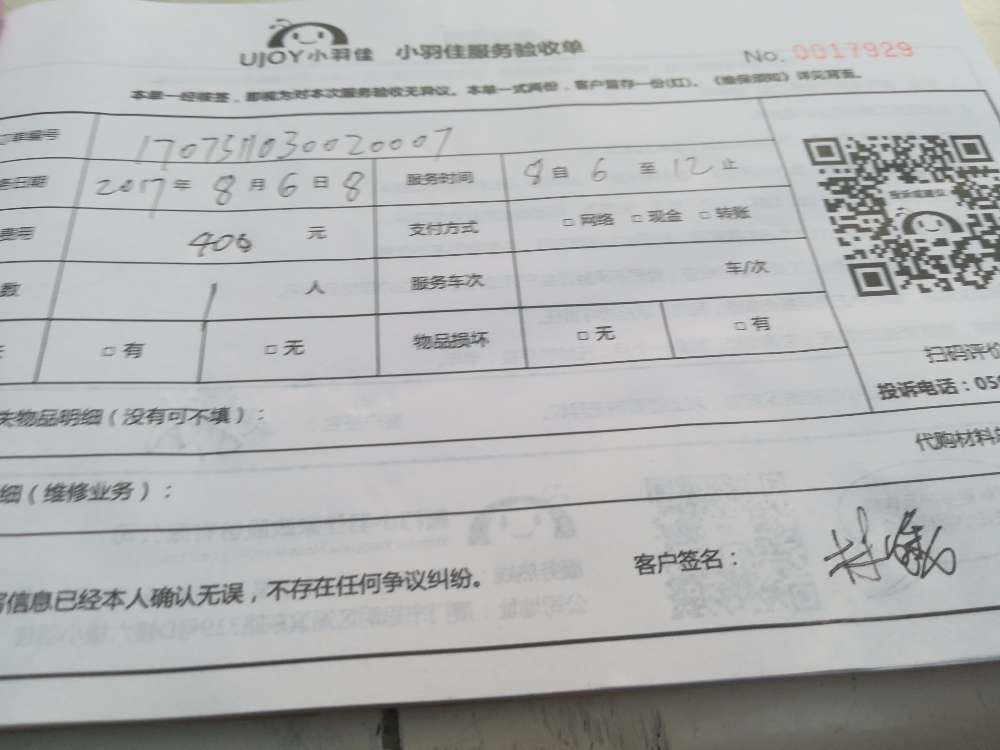 UJOY小羽佳 小羽佳服务验收单
No. 0017929
本单一经核签，即视为对本次服务验收无异议。本单一式两份，客户留存一份(红)。《维保须知》详见背面。
编号 170731103002000７
日期 2017年8月6日8 服务时间 8自6至12止
费用 400元 支付方式 □ 网络 □ 现金 □ 转账
数 1 人 服务车次 车/次
□ 有 □ 无 物品损坏 □ 无 □ 有
扫码评价
投诉电话：05
失物品明细（没有可不填）：
代购材料总
细（维修业务）：
信息已经本人确认无误，不存在任何争议纠纷。
客户签名：